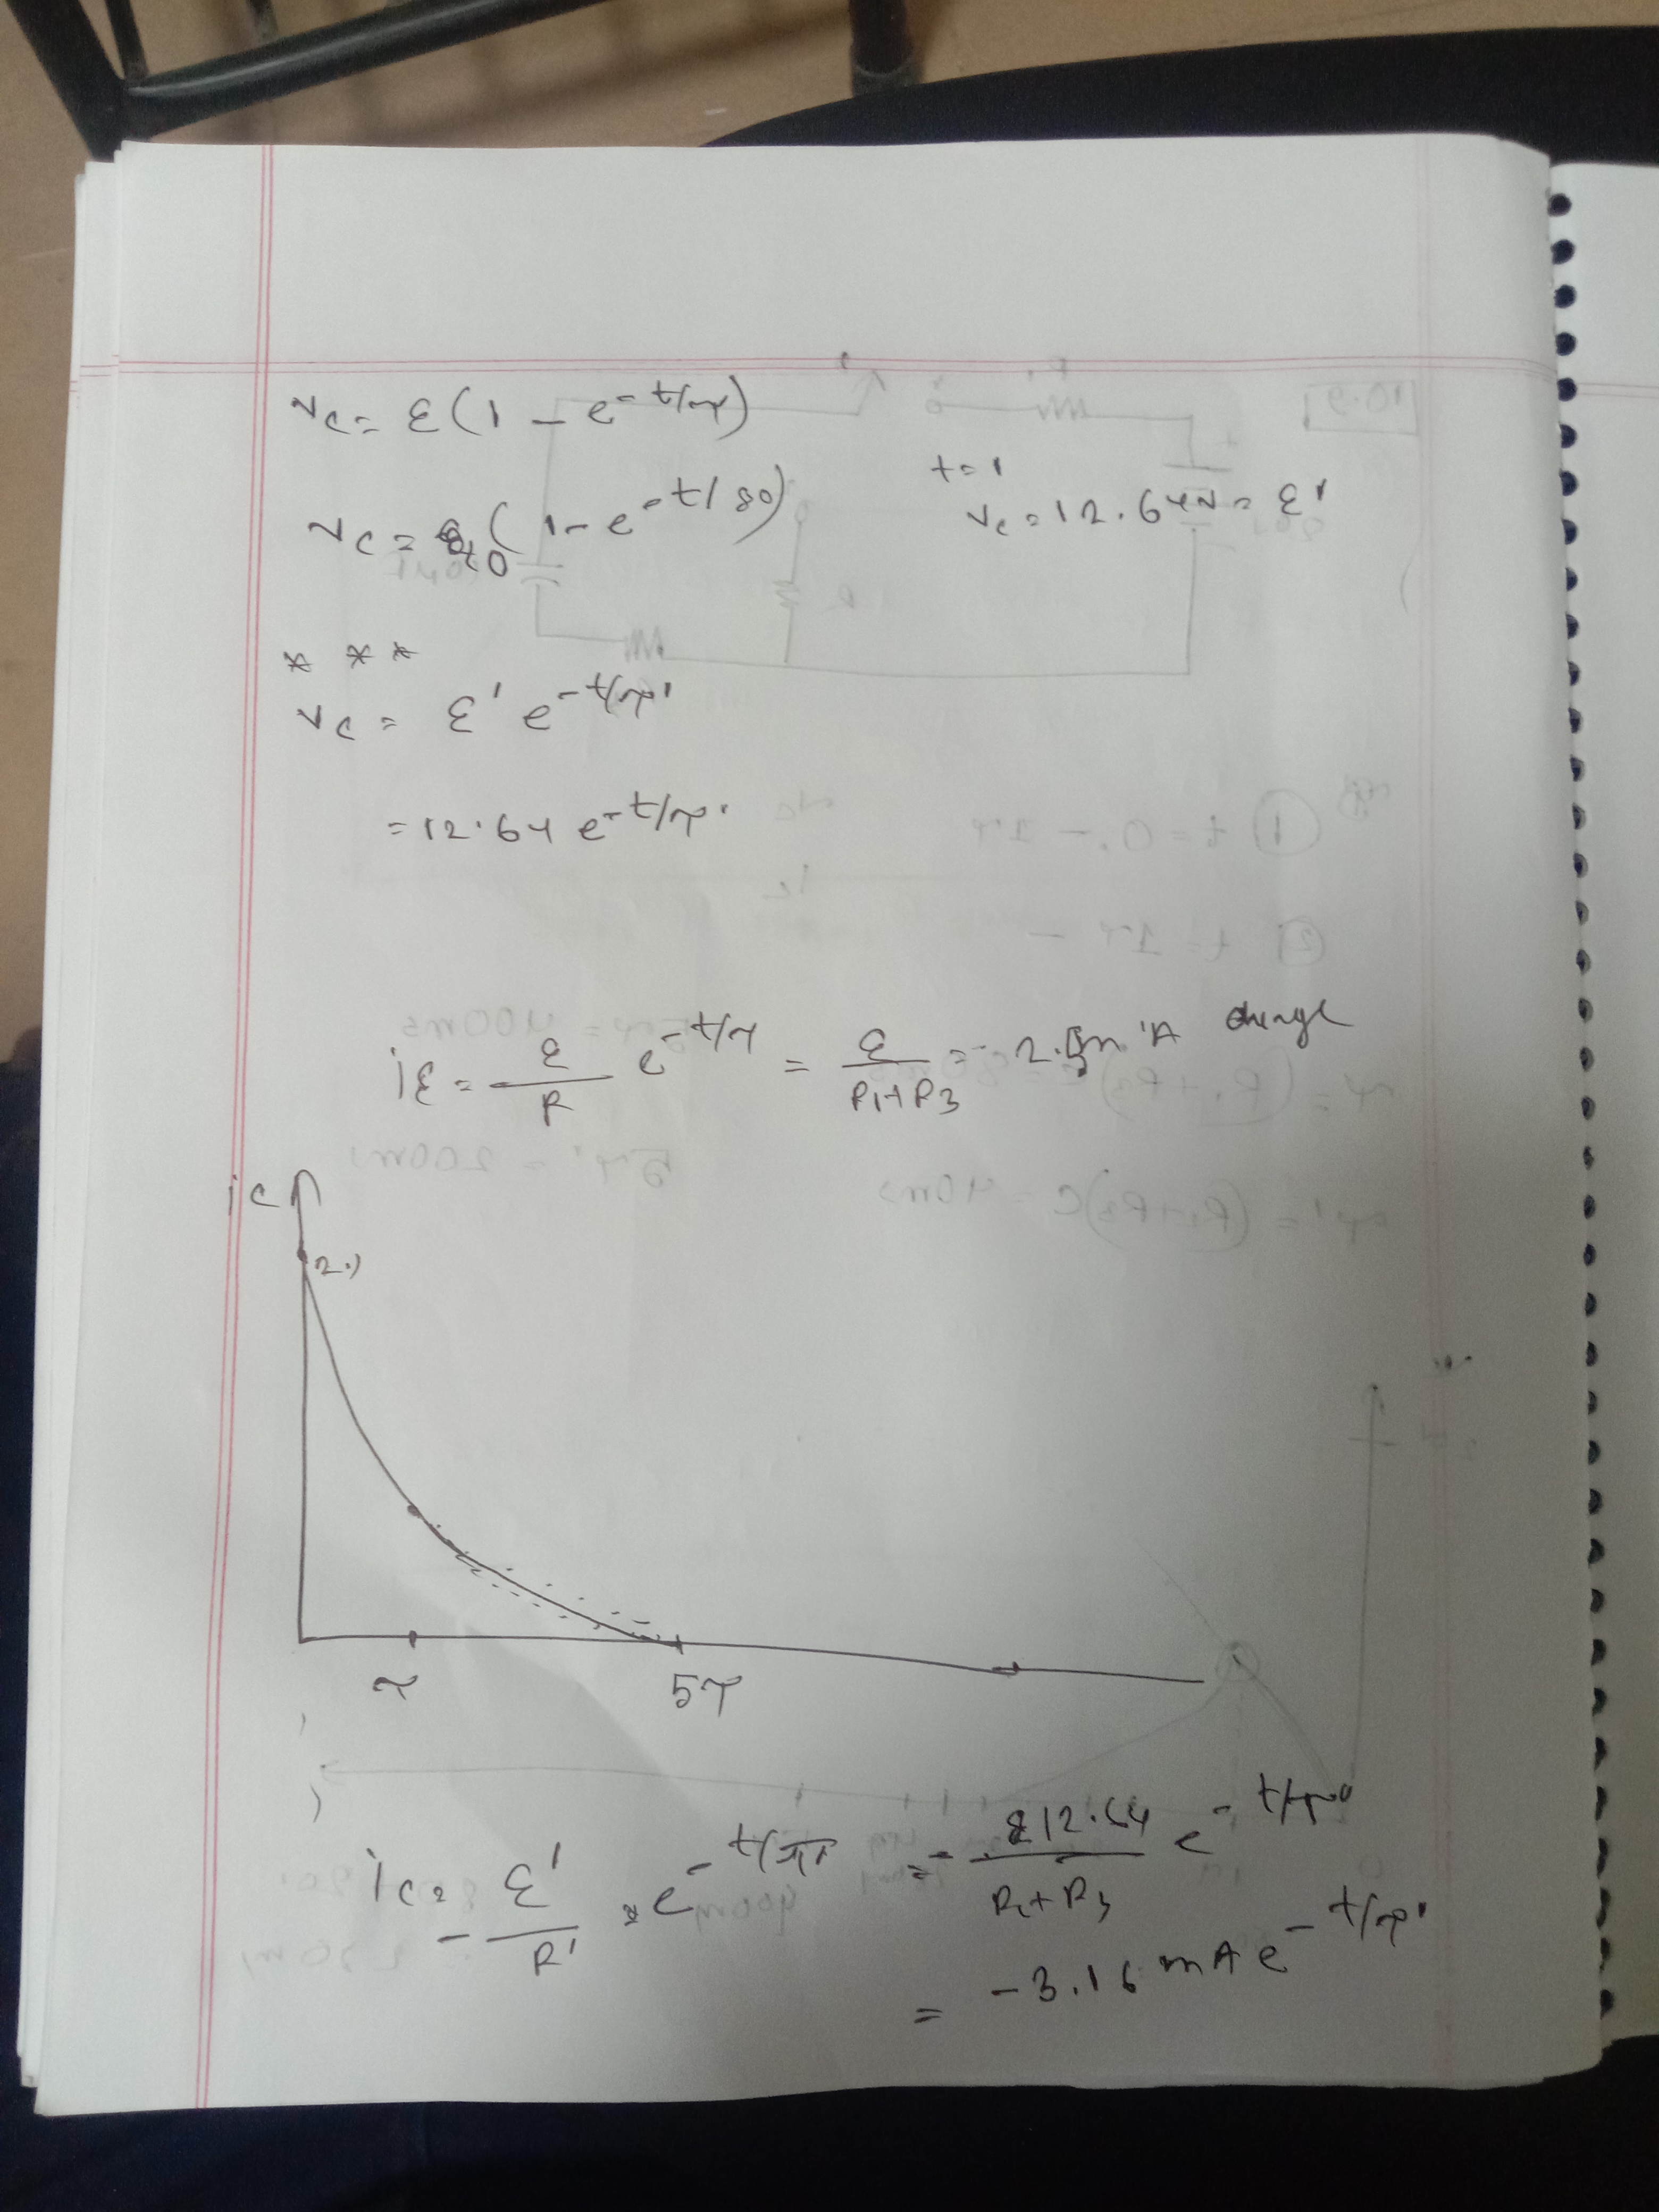 vc = ε(1 − e^-t/τ)
vc = 20(1 − e^-t/80)
t=1
vc = 12.64V = ε'
* * *
vc = ε' e^-t/τ'
= 12.64 e^-t/τ'
iε = ε/R e^-t/τ = ε/(R1+R3) = 2.5m A
ic
τ 5τ
ic = − ε'/R' e^-t/τ' = − 12.64/(R2+R3) e^-t/τ'
= −3.16 mA e^-t/τ'